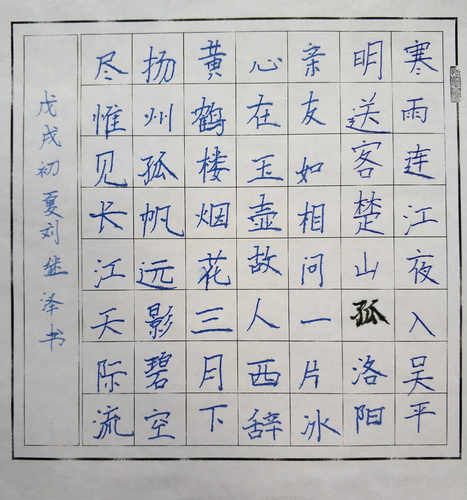 寒雨连江夜入吴平
明送客楚山孤洛阳
亲友如相问一片冰
心在玉壶故人西辞
黄鹤楼烟花三月下
扬州孤帆远影碧空
尽惟见长江天际流
戊戌初夏刘继泽书